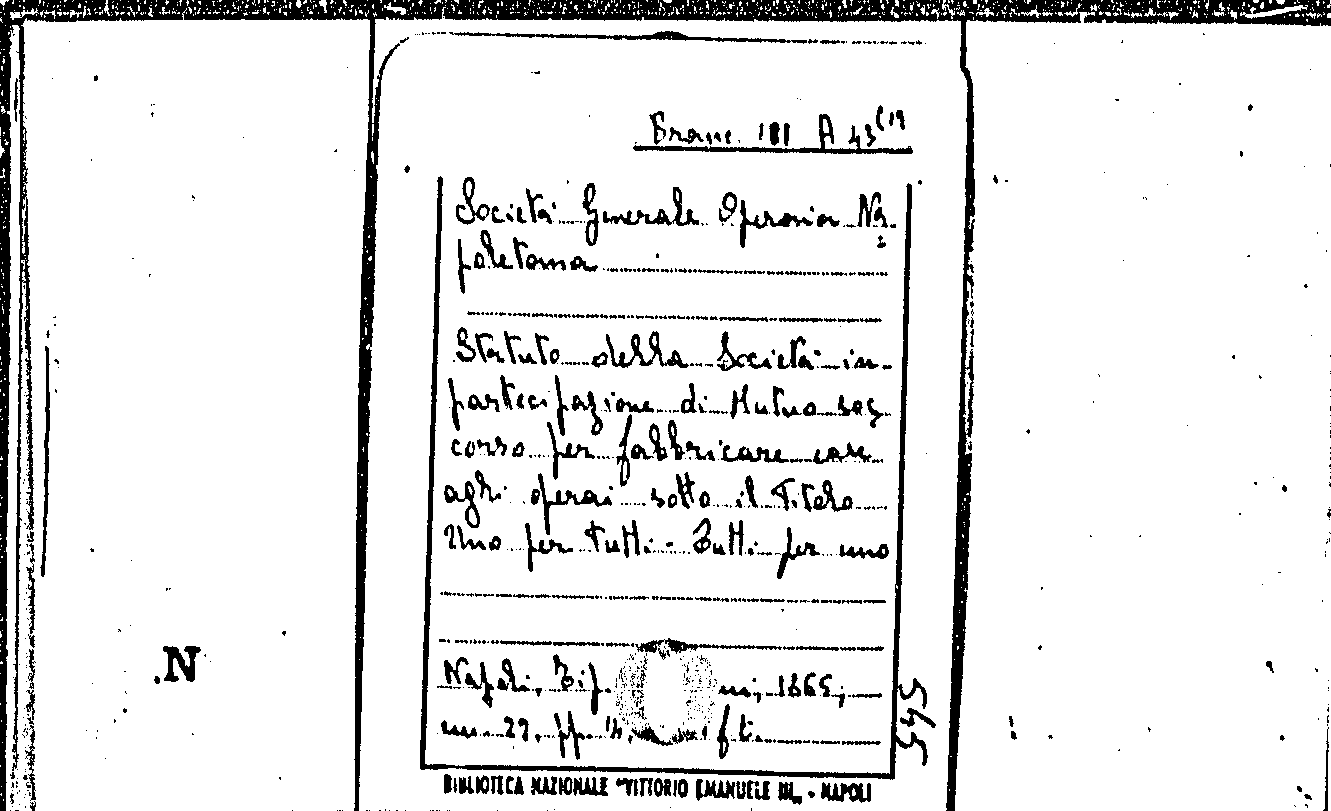 Branc. III A 43 (19
Società Generale Operaia Na
poletana
Statuto della Società in
partecipazione di Mutuo soc
corso per fabbricare case
agli operai sotto il Titolo
Uno per tutti - Tutti per uno
Napoli, Tip. 1865,
in. 22. pp.
545
.N
BIBLIOTECA NAZIONALE "VITTORIO EMANUELE III„ - NAPOLI